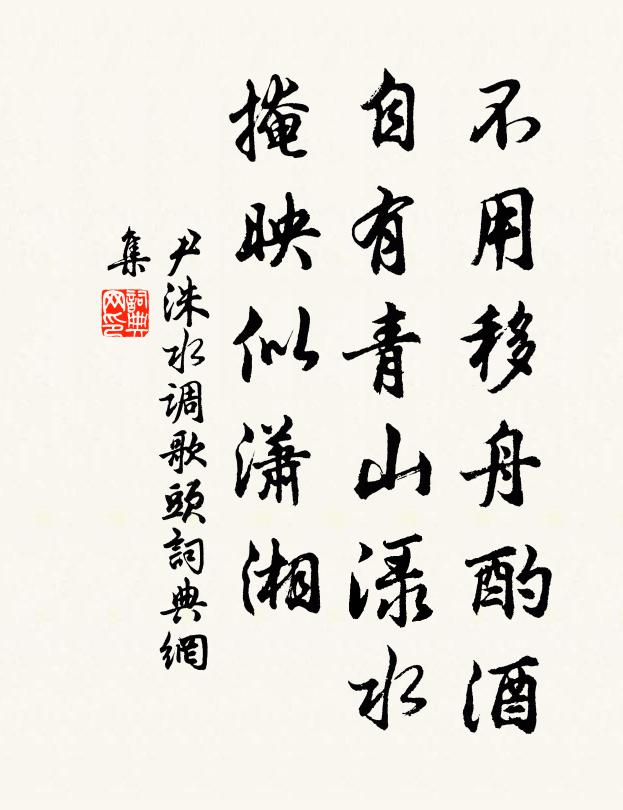 不用移舟酌酒
自有青山渌水
掩映似潇湘
尹洙水调歌頭詞典網
集
詞典網印